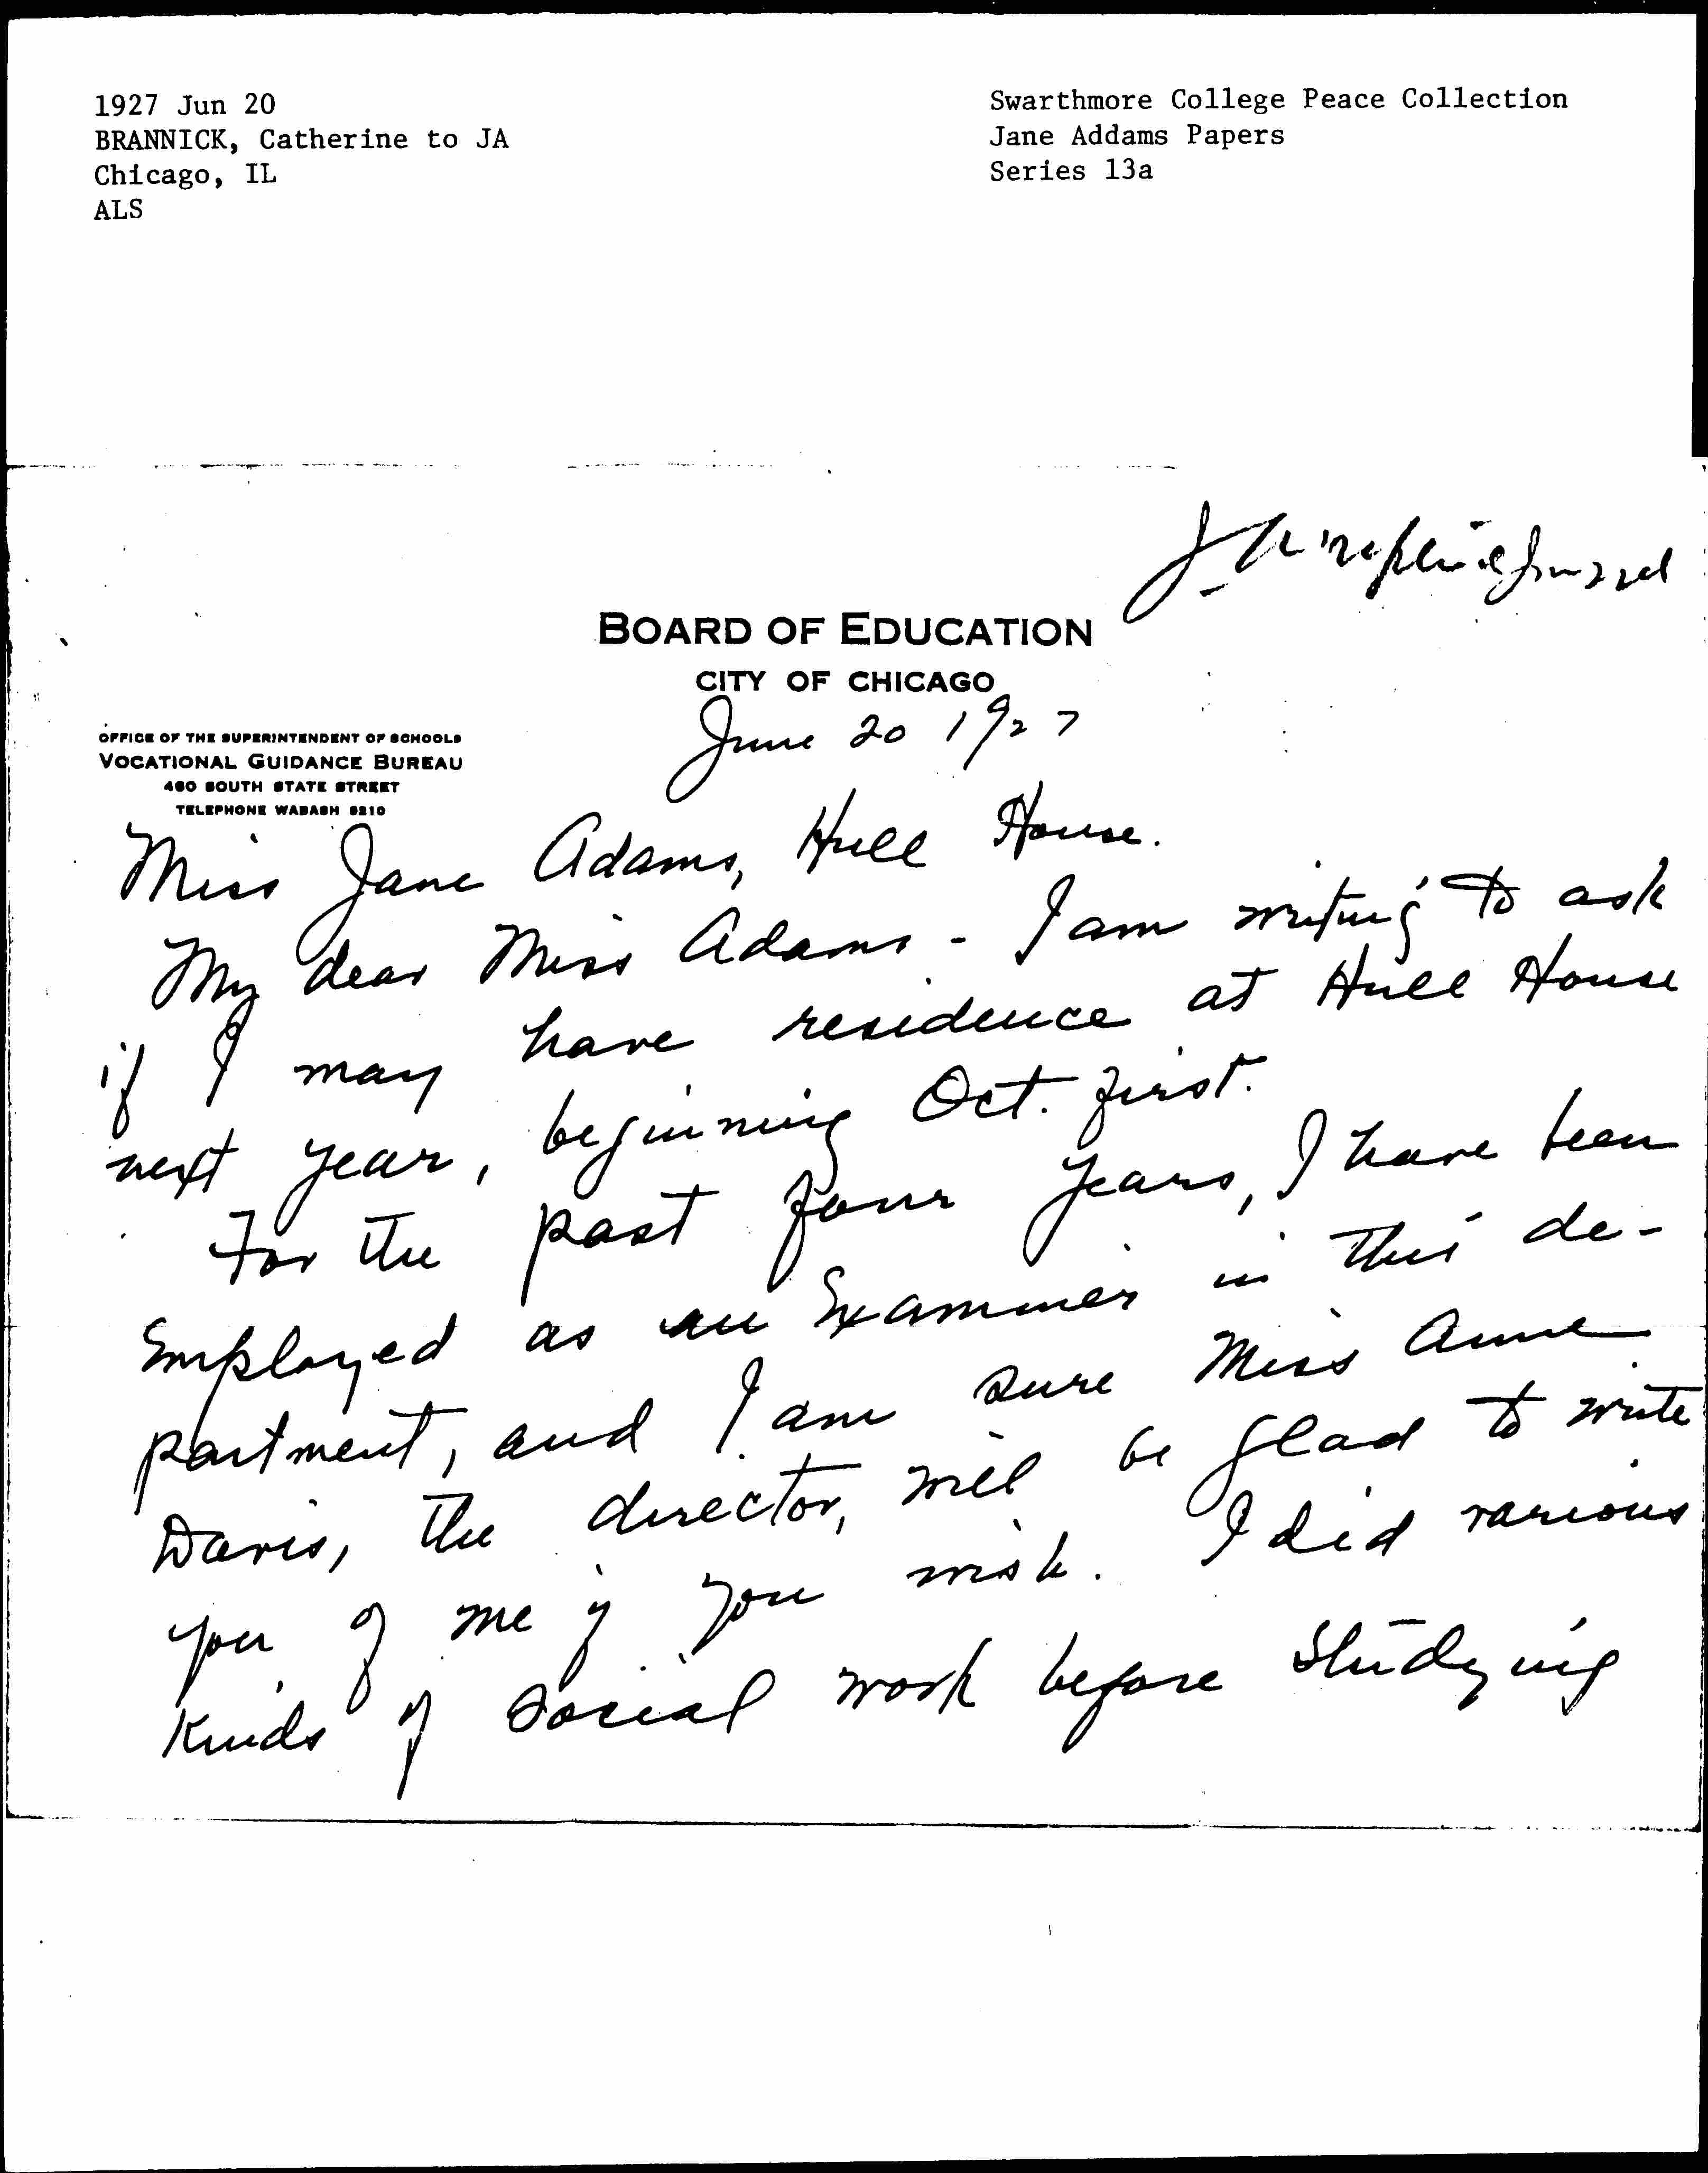 1927 Jun 20
BRANNICK, Catherine to JA
Chicago, IL
ALS
Swarthmore College Peace Collection
Jane Addams Papers
Series 13a
BOARD OF EDUCATION
CITY OF CHICAGO
June 20 1927
OFFICE OF THE SUPERINTENDENT OF SCHOOLS
VOCATIONAL GUIDANCE BUREAU
460 SOUTH STATE STREET
TELEPHONE WABASH 5210
Miss Jane Adams, Hull House.
My dear Miss Adams - I am writing to ask
if I may have residence at Hull House
next year, beginning Oct. first.
For the past four years, I have been
Employed as an Examiner in this de-
partment, and I am sure Miss Anne
Davis, the director, will be glad to write
you of me if you wish. I did various
Kinds of social work before studying